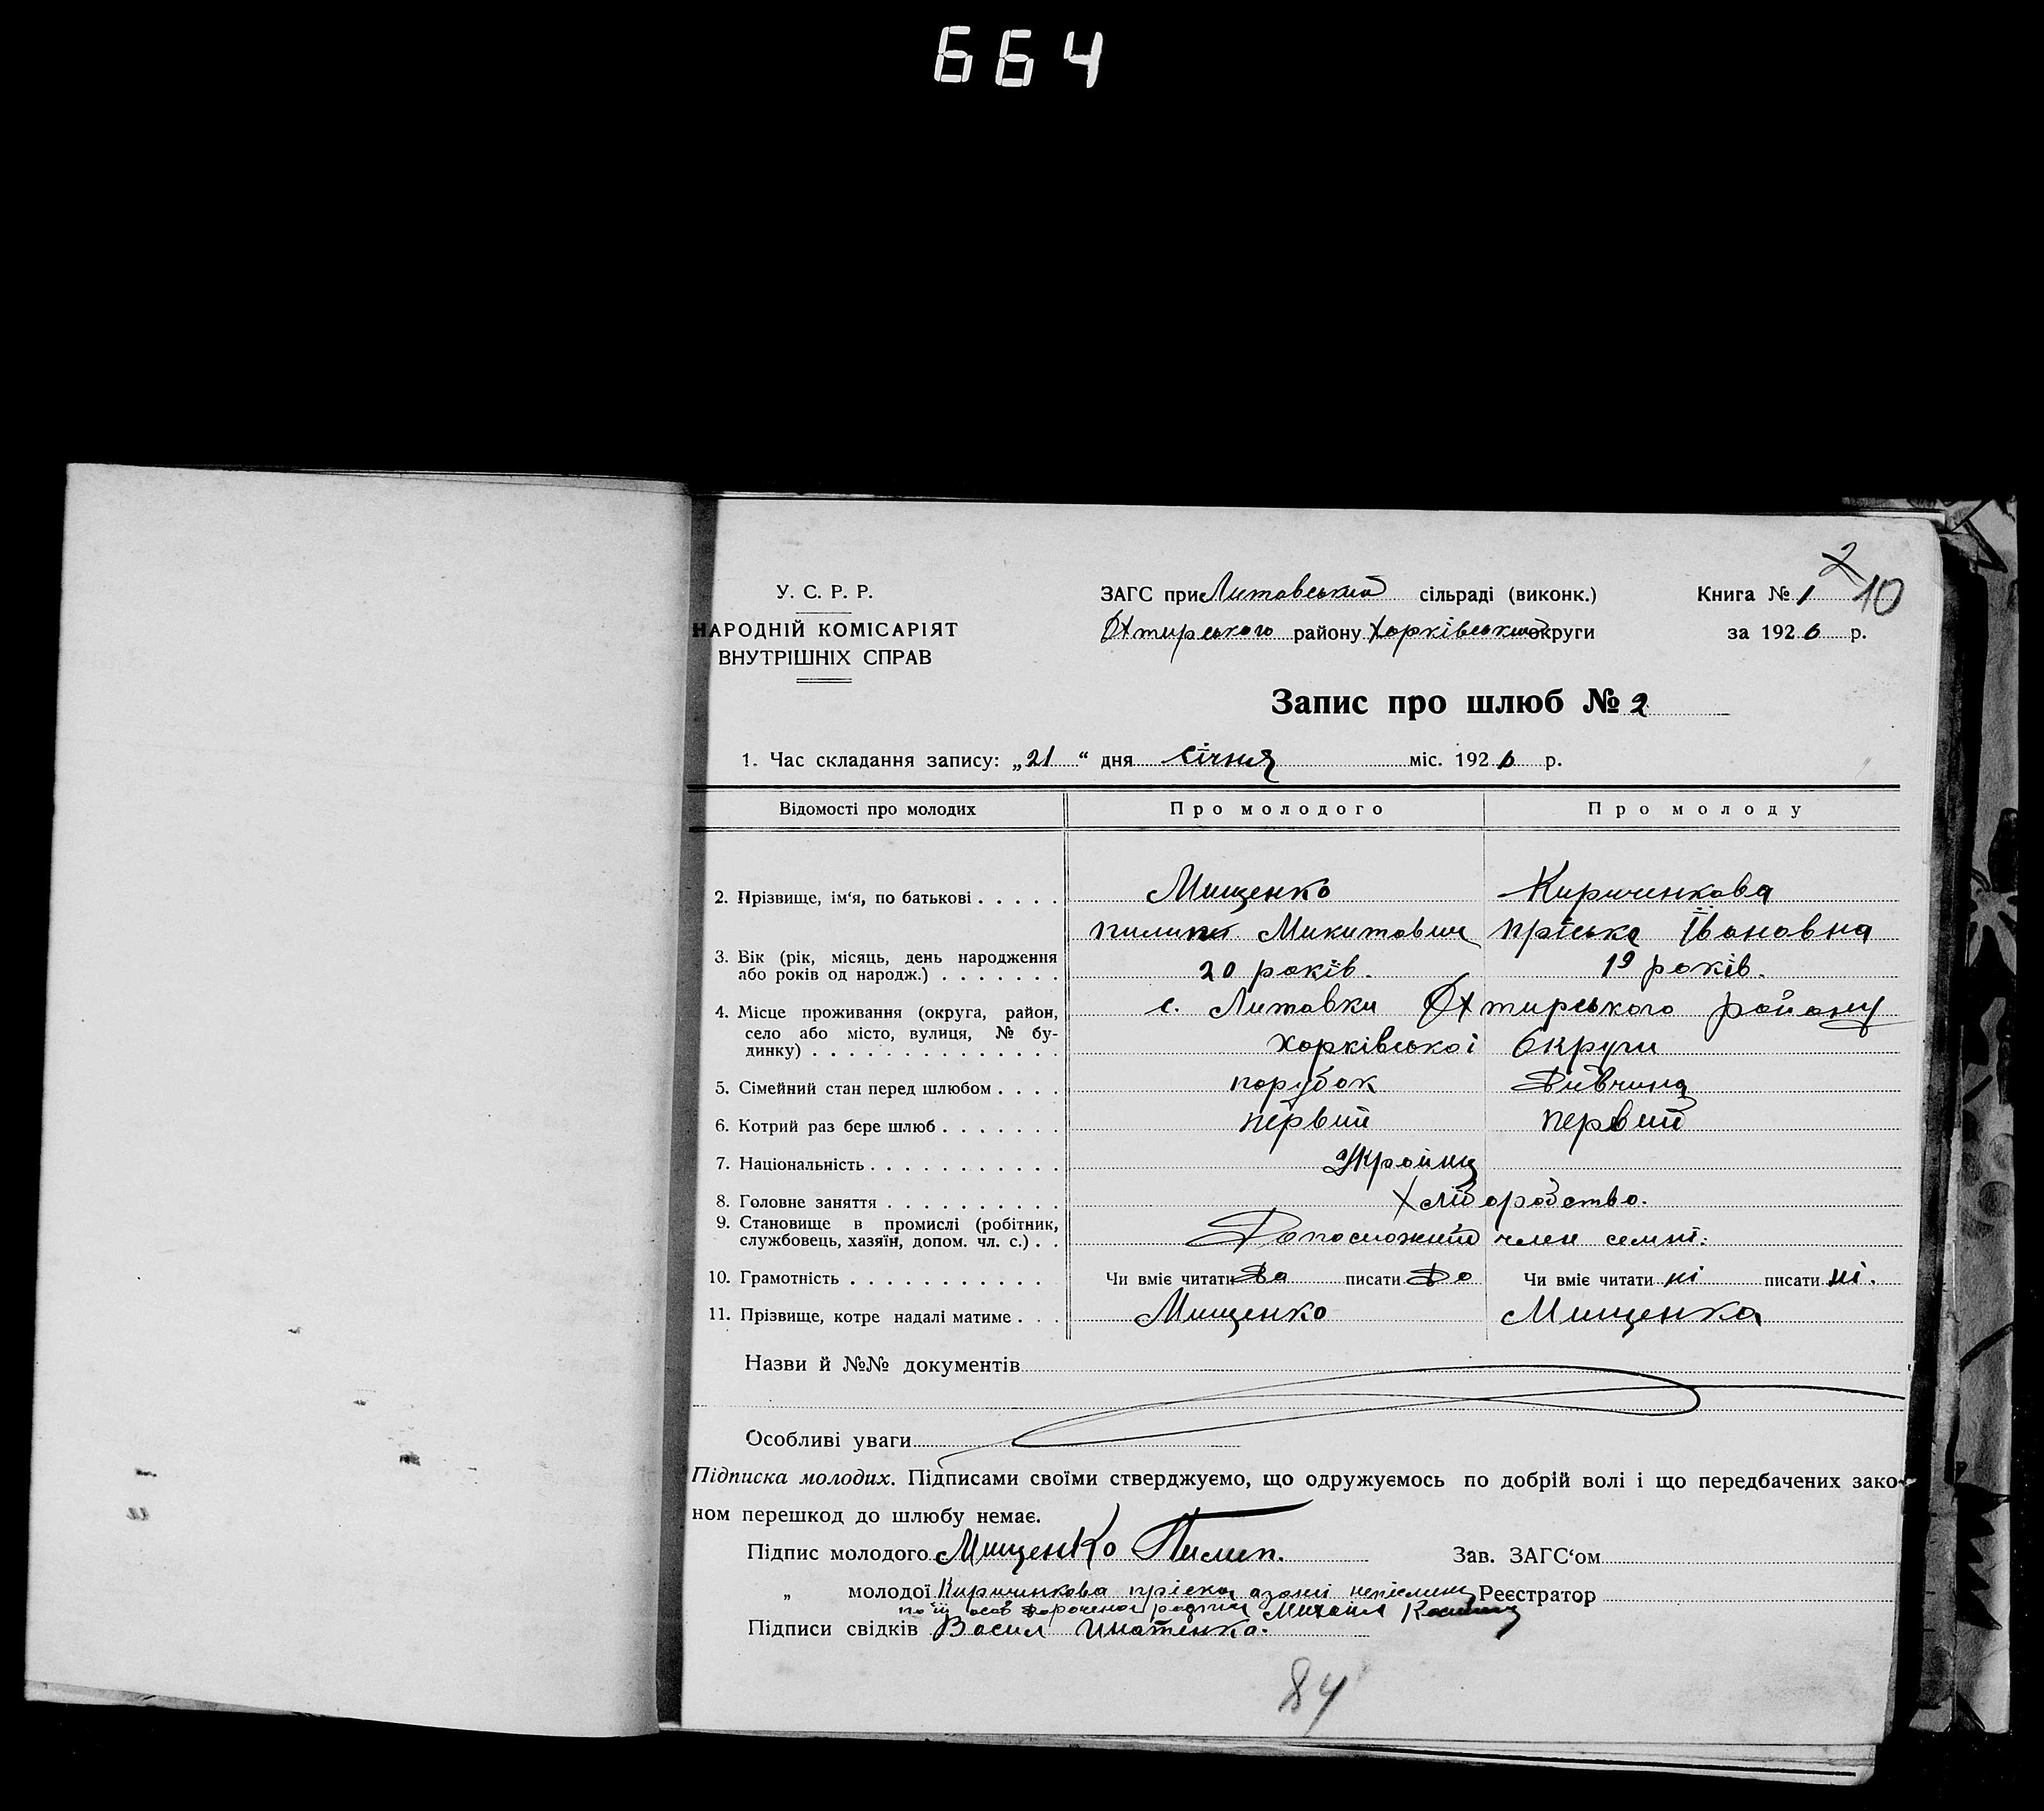 664
2
10
У. С. Р. Р.
НАРОДНІЙ КОМІСАРІЯТ
ВНУТРІШНІХ СПРАВ
ЗАГС при Литовський сільраді (виконк.)
Охтирського району Харківської округи
Книга № 1
за 1926 р.
Запис про шлюб № 2
1. Час складання запису: „21“ дня січня міс. 1926 р.
Відомості про молодих Про молодого Про молоду
2. Прізвище, ім‘я, по батькові . . . . . Мищенко Кириченкова
Пилип Микитович Пріська Івановна
3. Вік (рік, місяць, день народження
або років од народж.) . . . . . . . 20 років. 19 років.
4. Місце проживання (округа, район, с. Литовки Охтирського району
село або місто, вулиця, № бу-
динку) . . . . . . . . . . . . . . Харківської Округи
5. Сімейний стан перед шлюбом . . . . парубок Дивчина
6. Котрий раз бере шлюб . . . . . . . первий первий
7. Національність . . . . . . . . . . . Україну
8. Головне заняття . . . . . . . . . . Хліборобство.
9. Становище в промислі (робітник,
службовець, хазяїн, допом. чл. с.) . . член семьї.
10. Грамотність . . . . . . . . . . . Чи вміє читати Да писати Да Чи вміє читати ні писати ні.
11. Прізвище, котре надалі матиме . . . Мищенко Мищенка
Назви й №№ документів
Особливі уваги
Підписка молодих. Підписами своїми стверджуємо, що одружуємось по добрій волі і що передбачених зако-
ном перешкод до шлюбу немає.
Підпис молодого Мищенко Пилип. Зав. ЗАГС‘ом
„ молодої Киричинкова пріска Реєстратор
по її Михаил
Підписи свідків Васил Игнатенко.
84